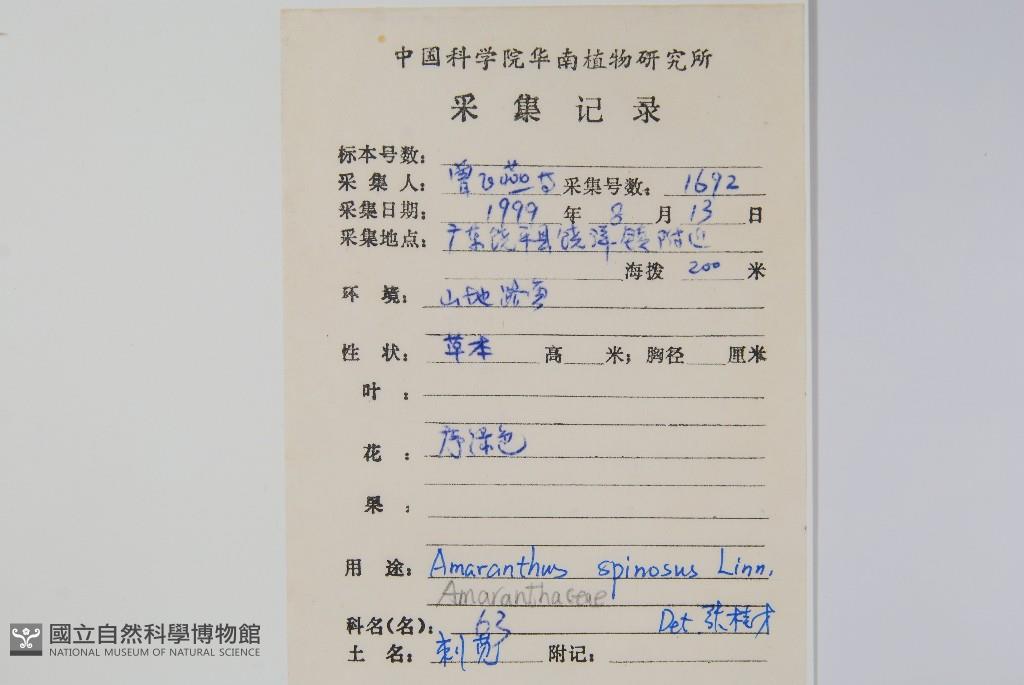 中国科学院华南植物研究所
采集记录
标本号数：
采集人：曾飞燕 采集号数：1692
采集日期：1999年8月13日
采集地点：广东饶平县饶洋镇附近
海拨 200 米
环境：山地路旁
性状：草本 高 米；胸径 厘米
叶：
花：序绿色
果：
用途：Amaranthus spinosus Linn.
Amaranthaceae
科名(名)：63 Det. 张桂才
土名：刺苋 附记：
國立自然科學博物館
NATIONAL MUSEUM OF NATURAL SCIENCE